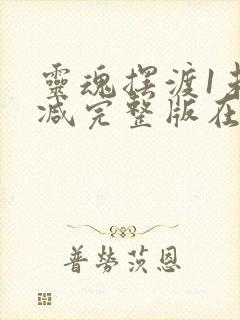 靈魂摆渡1未
减完整版在
普勞茨恩